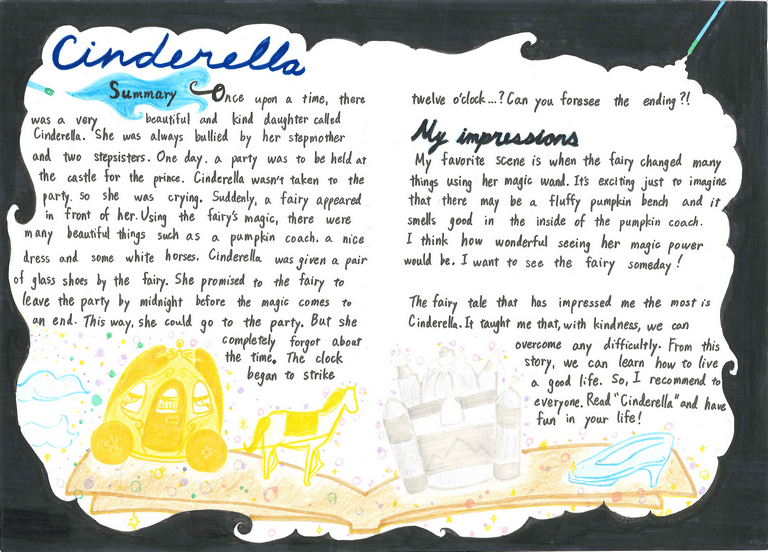 Cinderella
Summary
Once upon a time, there
was a very beautiful and kind daughter called
Cinderella. She was always bullied by her stepmother
and two stepsisters. One day, a party was to be held at
the castle for the prince. Cinderella wasn't taken to the
party, so she was crying. Suddenly, a fairy appeared
in front of her. Using the fairy's magic, there were
many beautiful things such as a pumpkin coach, a nice
dress and some white horses. Cinderella was given a pair
of glass shoes by the fairy. She promised to the fairy to
leave the party by midnight before the magic comes to
an end. This way, she could go to the party. But she
completely forgot about
the time. The clock
began to strike
twelve o'clock...? Can you foresee the ending?!
My impressions
My favorite scene is when the fairy changed many
things using her magic wand. It's exciting just to imagine
that there may be a fluffy pumpkin bench and it
smells good in the inside of the pumpkin coach.
I think how wonderful seeing her magic power
would be. I want to see the fairy someday!
The fairy tale that has impressed me the most is
Cinderella. It taught me that, with kindness, we can
overcome any difficultly. From this
story, we can learn how to live
a good life. So, I recommend to
everyone. Read "Cinderella" and have
fun in your life!